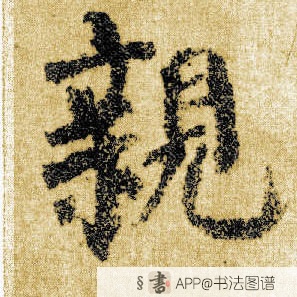 親
§ 書 APP@书法图谱